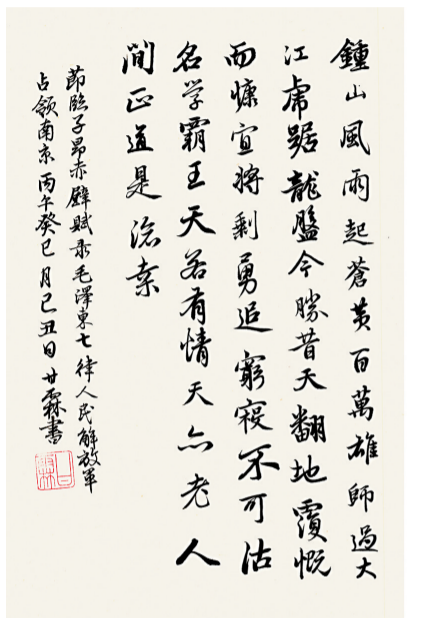 鍾山風雨起蒼黄百萬雄師過大
江虎踞龍盤今勝昔天翻地覆慨
而慷宜將剩勇追窮寇不可沽
名学霸王天若有情天亦老人
间正道是滄桑
節臨子昂赤壁賦录毛澤東七律人民解放軍
占领南京丙午癸巳月己丑日甘霖書
甘霖